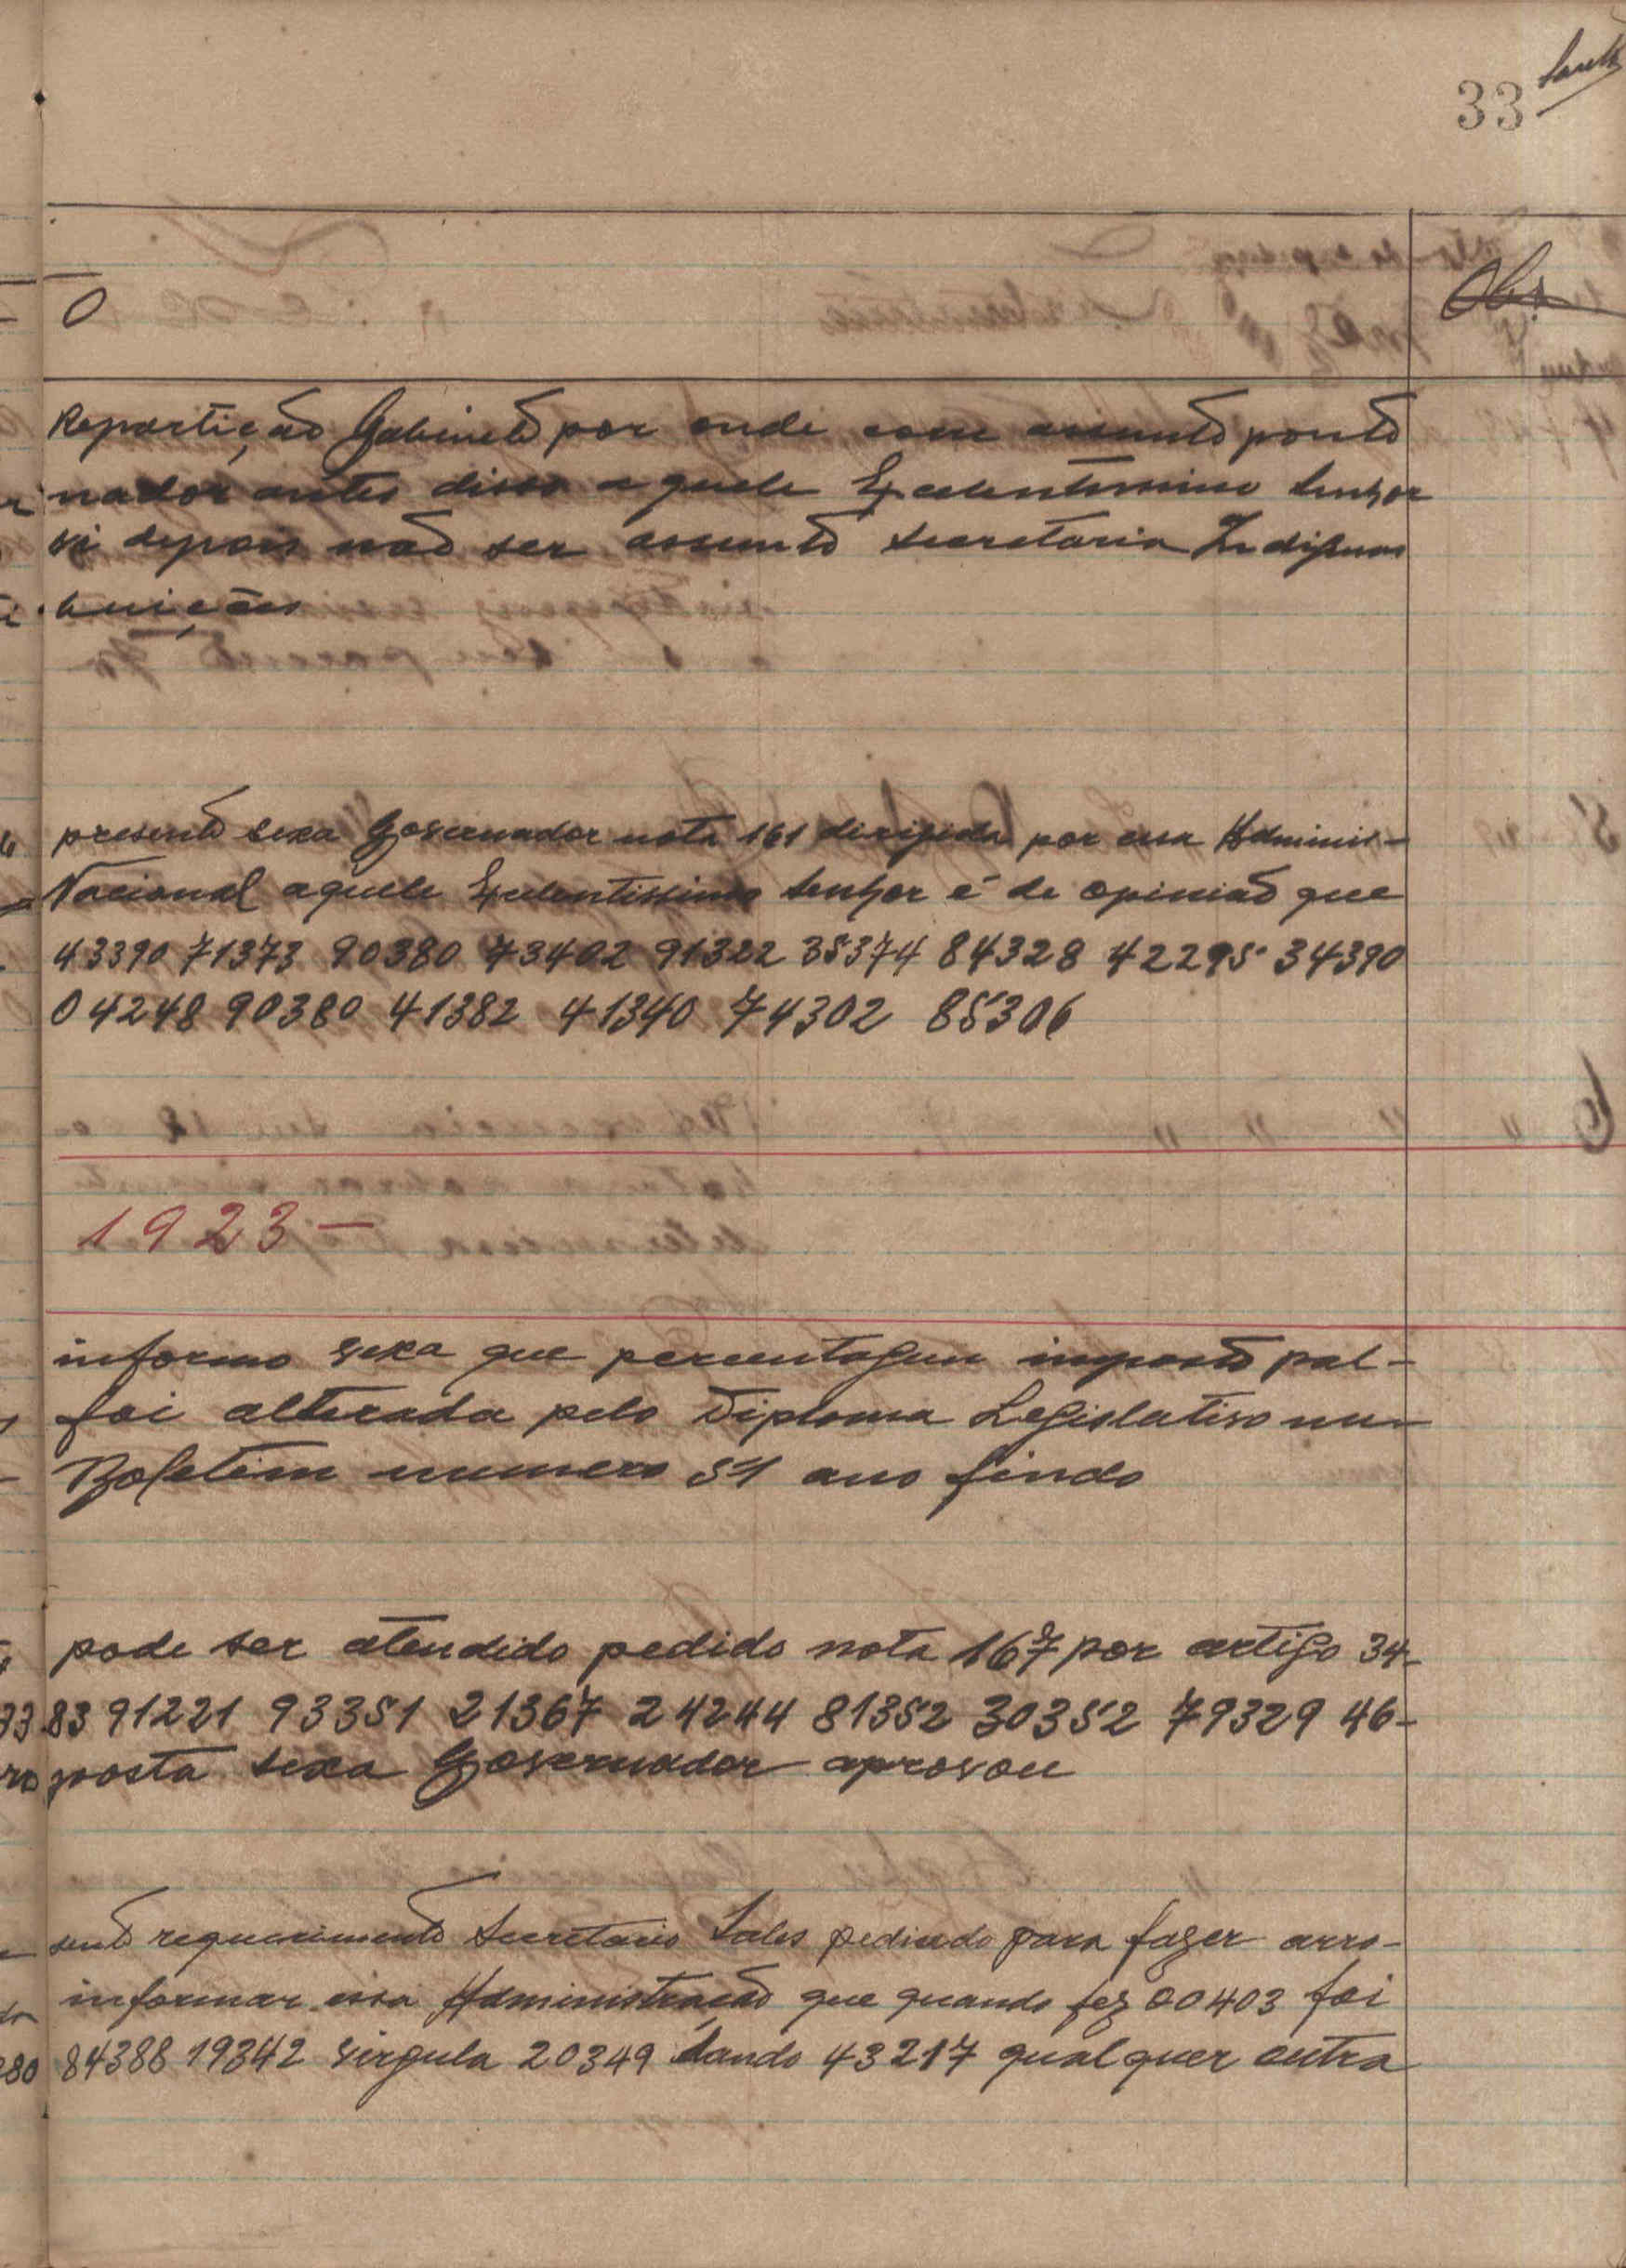 33
O
Obs.
Repartição Gabinete por onde corre assunto ponto
nador antes disso aquele Excelentissimo Senhor
si depois não ser assunto secretaria Indigenas
buições
presente sexa Governador nota 161 dirigida por essa Adminis-
Nacional aquele Excelentissimo Senhor é de opinião que
43390 71373 90380 73402 91322 35374 84328 42295 34390
04248 90380 41382 41340 74302 85306
1923 —
informo sexa que percentagem imposto pal-
foi alterada pelo Diploma Legislativo nu-
Boletim numero 51 ano findo
pode ser atendido pedido nota 167 por artigo 34-
83 91221 93351 21367 24244 81352 30352 79329 46-
posta sexa Governador aprovou
sente requerimento Secretario Sales pedindo para fazer arro-
informar essa Administração que quando fez 00403 foi
84388 19342 virgula 20349 dando 43217 qualquer outra